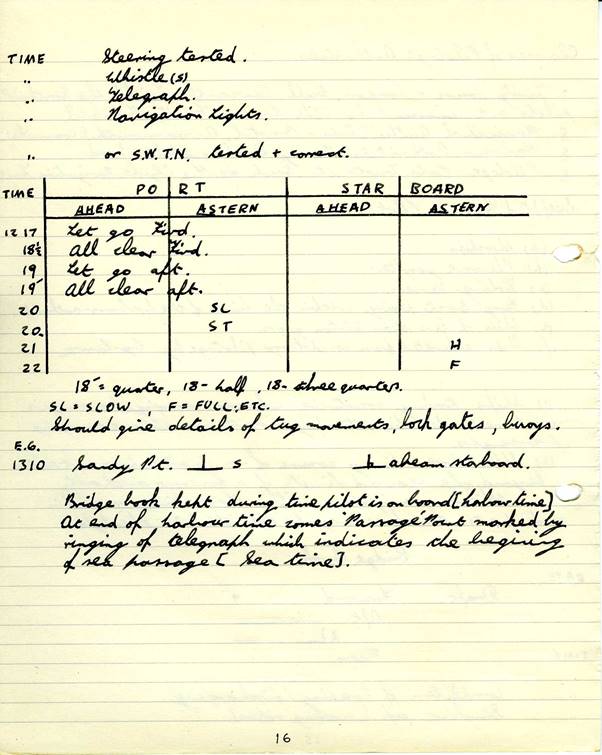 TIME Steering tested.
" Whistle(s)
" Telegraph.
" Navigation Lights.
" or S.W.T.N. tested + correct.
TIME PORT STARBOARD
AHEAD ASTERN AHEAD ASTERN
1217 Let go Fwd.
18½ All clear Fwd.
19 Let go aft.
19' All clear aft.
20 SL
20. ST
21 H
22 F
18' = quarter, 18- half, 18- three quarters.
SL = SLOW, F = FULL, ETC.
Should give details of tug movements, lock gates, buoys.
E.G.
1310 Sandy Pt. ⊥ S abeam starboard.
Bridge book kept during time pilot is on board [harbour time]
At end of harbour time comes 'Passage' Point marked by
ringing of telegraph which indicates the begining
of sea passage [Sea time].
16